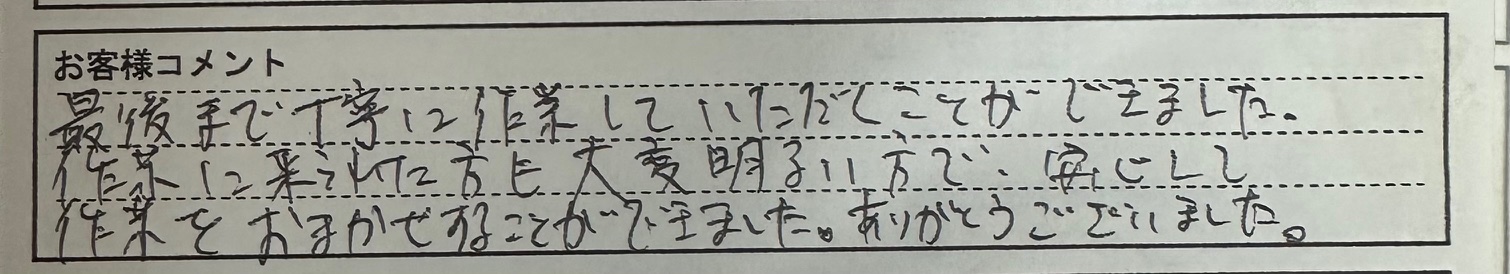 お客様コメント
最後まで丁寧に作業していただくことができました。
作業に来られた方も大変明るい方で、安心して
作業をおまかせすることができました。ありがとうございました。